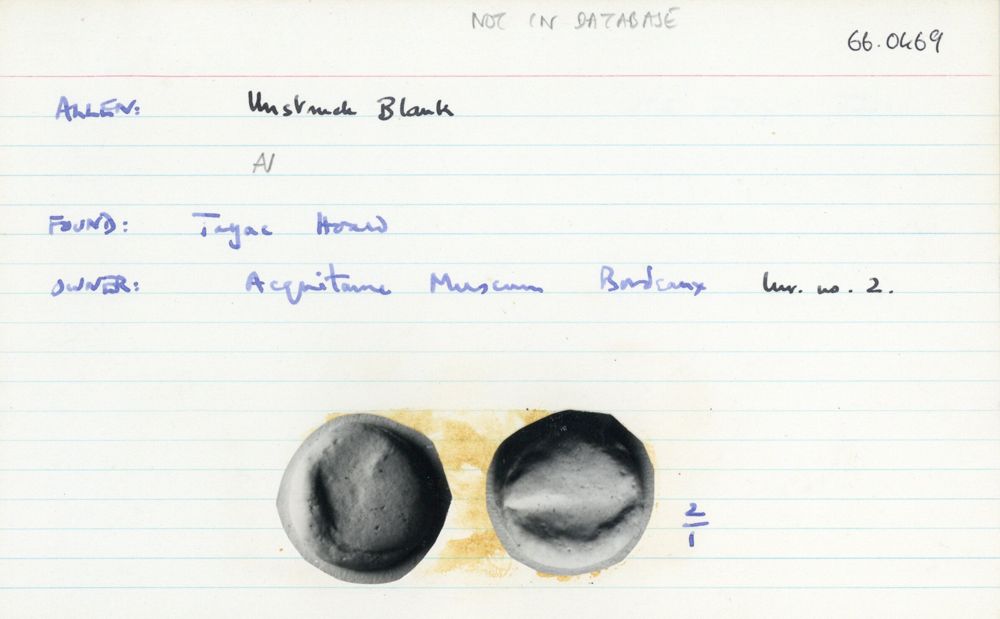 NOT IN DATABASE
66.0469
ALLEN: Unstruck Blank
AV
FOUND: Tayac Hoard
OWNER: Acquitaine Museum Bordeaux Inv. no. 2.
2
1